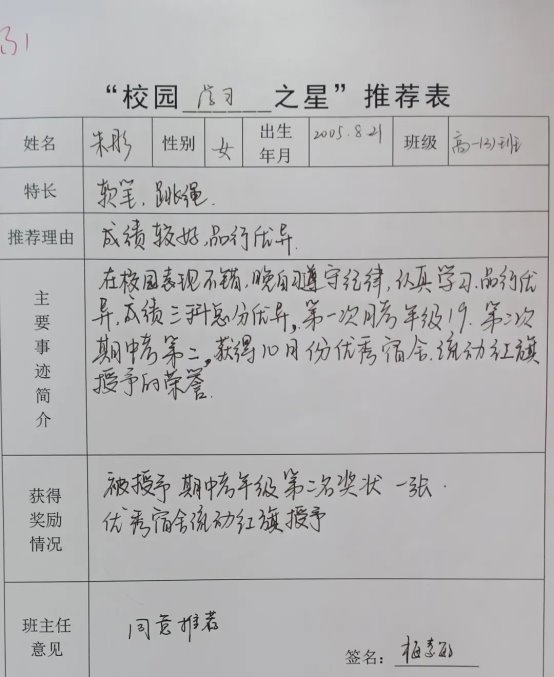 31
“校园 学习 之星”推荐表
姓名 朱彤 性别 女 出生年月 2005.8.21 班级 高一(3)班
特长 软笔、跳绳.
推荐理由 成绩较好,品行优异.
主要事迹简介
在校园表现不错,晚自习遵守纪律,认真学习,品行优
异,成绩三科总分优异。第一次月考年级19.第二次
期中考第二。获得10月份优秀宿舍.流动红旗
授予的荣誉.
获得奖励情况
被授予期中考年级第二名奖状一张.
优秀宿舍流动红旗授予
班主任意见
同意推荐
签名: